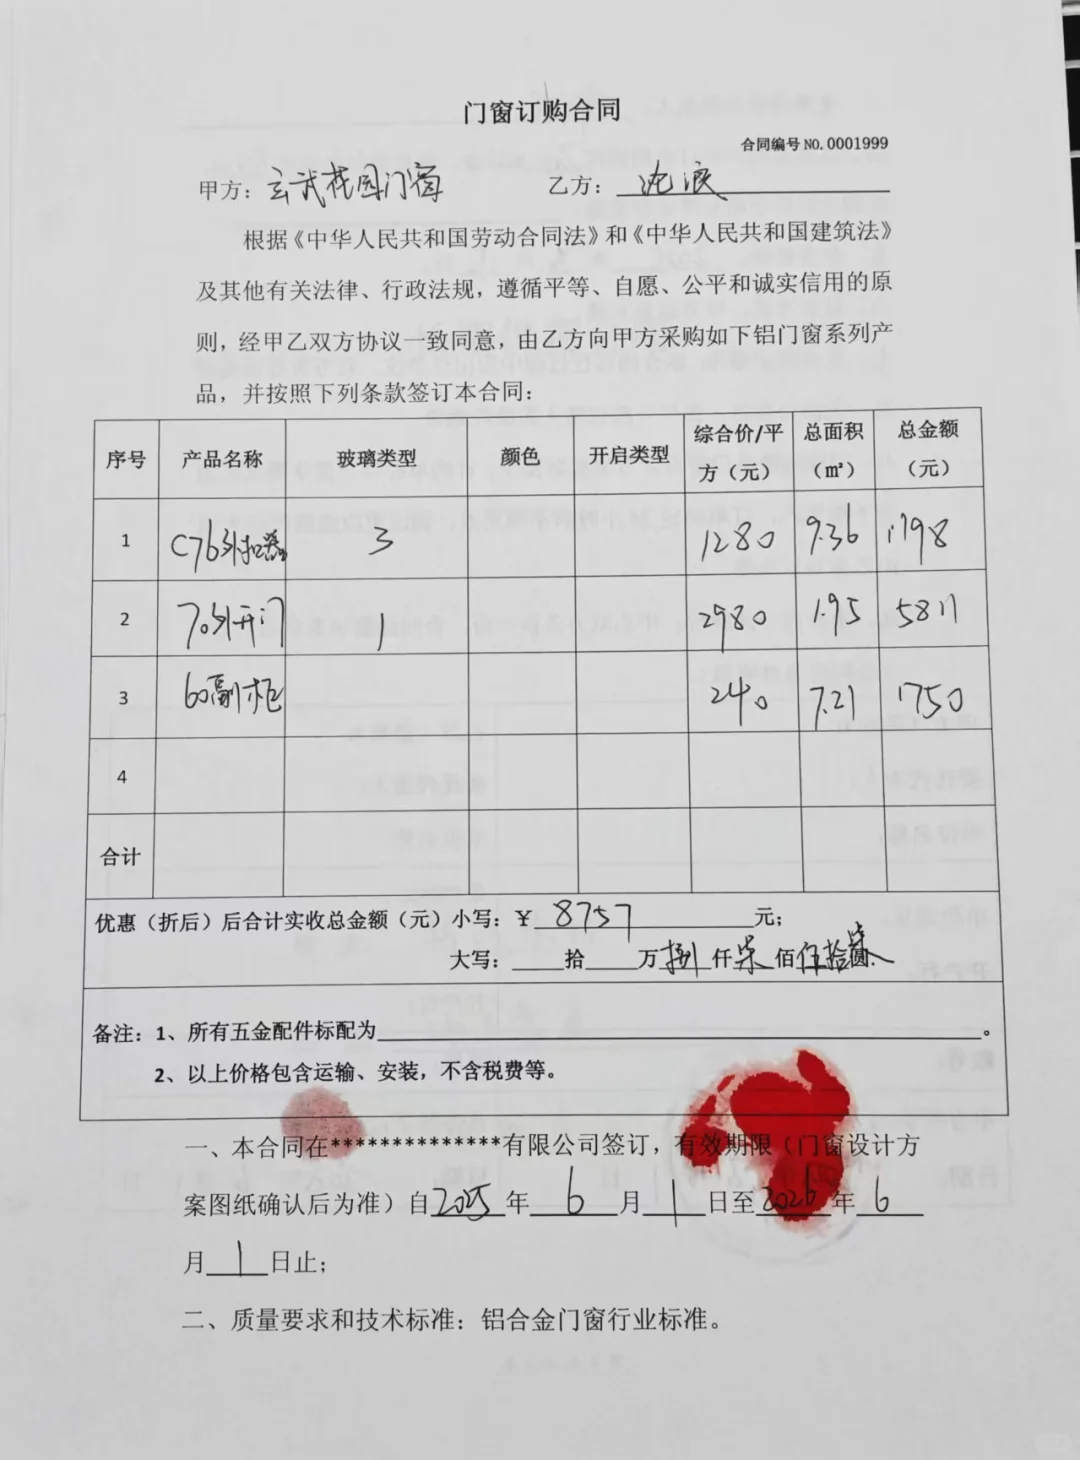 门窗订购合同
合同编号 NO. 0001999
甲方：玄武花园门窗 乙方：沈浪
根据《中华人民共和国劳动合同法》和《中华人民共和国建筑法》
及其他有关法律、行政法规，遵循平等、自愿、公平和诚实信用的原
则，经甲乙双方协议一致同意，由乙方向甲方采购如下铝门窗系列产
品，并按照下列条款签订本合同：
序号 产品名称 玻璃类型 颜色 开启类型 综合价/平方（元） 总面积（㎡） 总金额（元）
1 C76外 3 1280 9.36 1198
2 70外开门 1 2980 1.95 5811
3 60副框 240 7.21 1750
4
合计
优惠（折后）后合计实收总金额（元）小写：￥ 8757 元；
大写：____拾____万捌仟柒佰伍拾柒圆.
备注：1、所有五金配件标配为____________。
2、以上价格包含运输、安装，不含税费等。
一、本合同在**************有限公司签订，有效期限（门窗设计方
案图纸确认后为准）自2025年6月1日至2026年6
月1日止；
二、质量要求和技术标准：铝合金门窗行业标准。